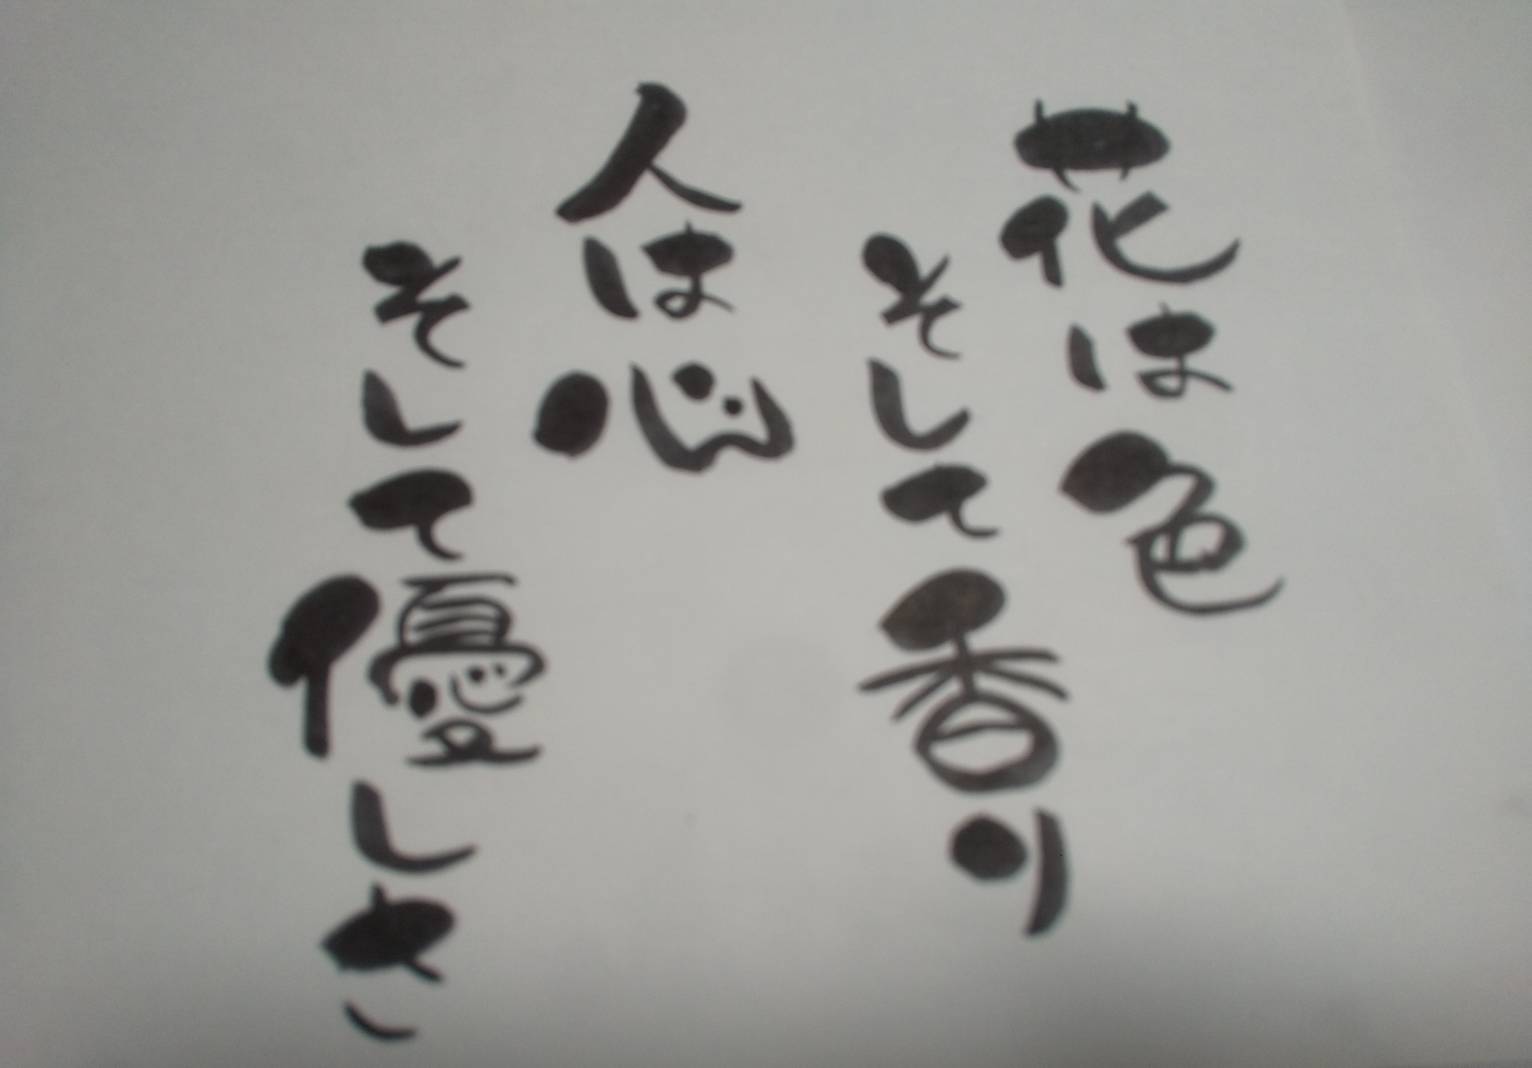 花は色
そして香り
人は心
そして優しさ